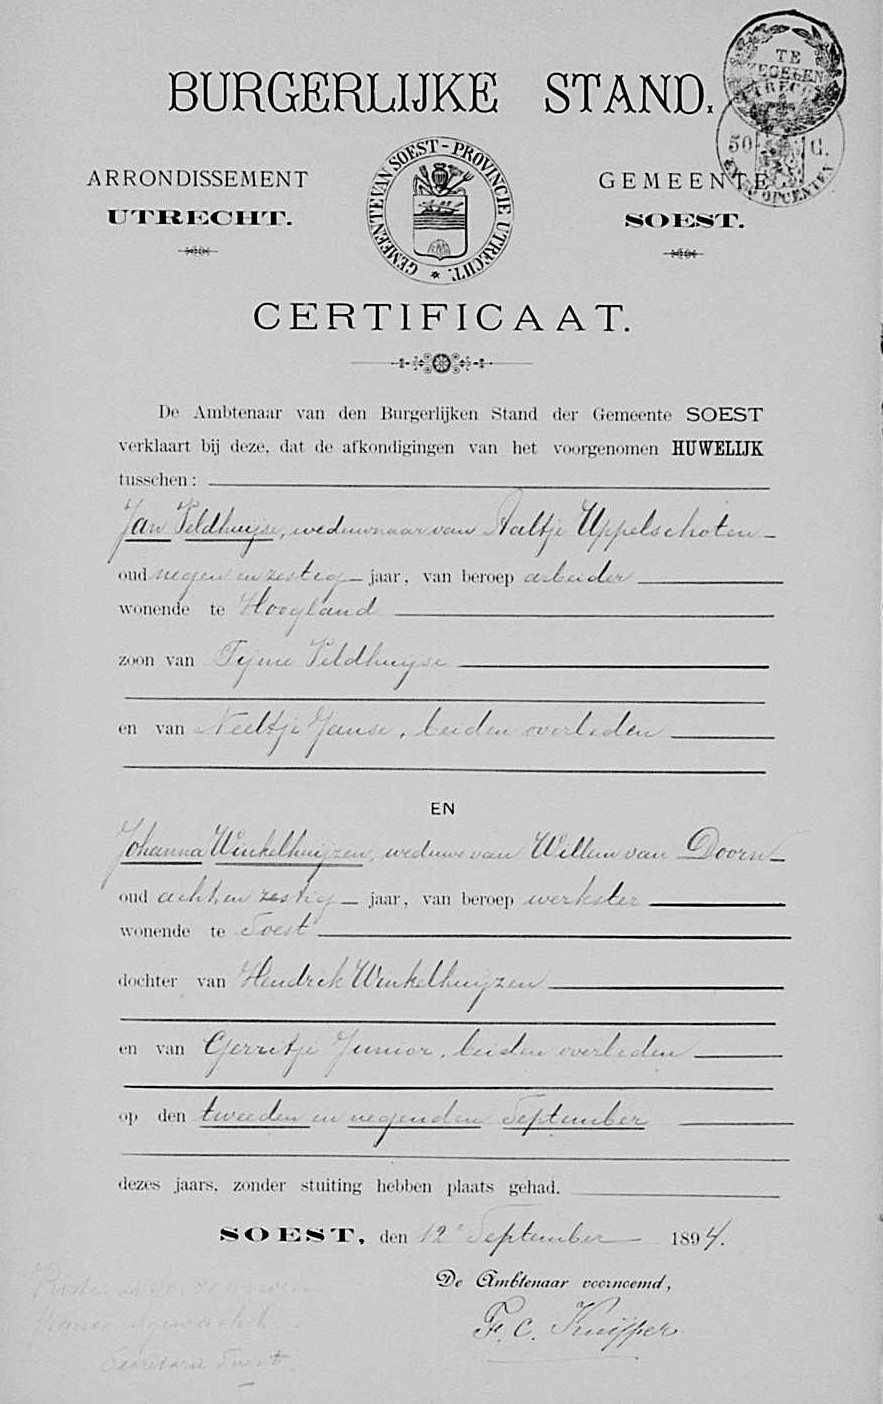 TE
ZEGELEN
UTRECHT
50 C.
EN 38 OPCENTEN
BURGERLIJKE STAND.
ARRONDISSEMENT
UTRECHT.
GEMEENTE VAN SOEST - PROVINCIE UTRECHT.
GEMEENTE
SOEST.
CERTIFICAAT.
De Ambtenaar van den Burgerlijken Stand der Gemeente SOEST
verklaart bij deze, dat de afkondigingen van het voorgenomen HUWELIJK
tusschen:
Jan Veldhuijse, weduwnaar van Aaltje Uppelschoten
oud negen en zestig jaar, van beroep arbeider
wonende te Hoogland
zoon van Tijme Veldhuijse
en van Neeltje Janse, beiden overleden
EN
Johanna Winkelhuijzen, weduwe van Willem van Doorn
oud acht en zestig jaar, van beroep werkster
wonende te Soest
dochter van Hendrik Winkelhuijzen
en van Gerritje Junior, beiden overleden
op den tweeden en negenden September
dezes jaars, zonder stuiting hebben plaats gehad.
SOEST, den 12e September 1894.
De Ambtenaar voornoemd,
F. C. Kuijper
Secretarie Soest